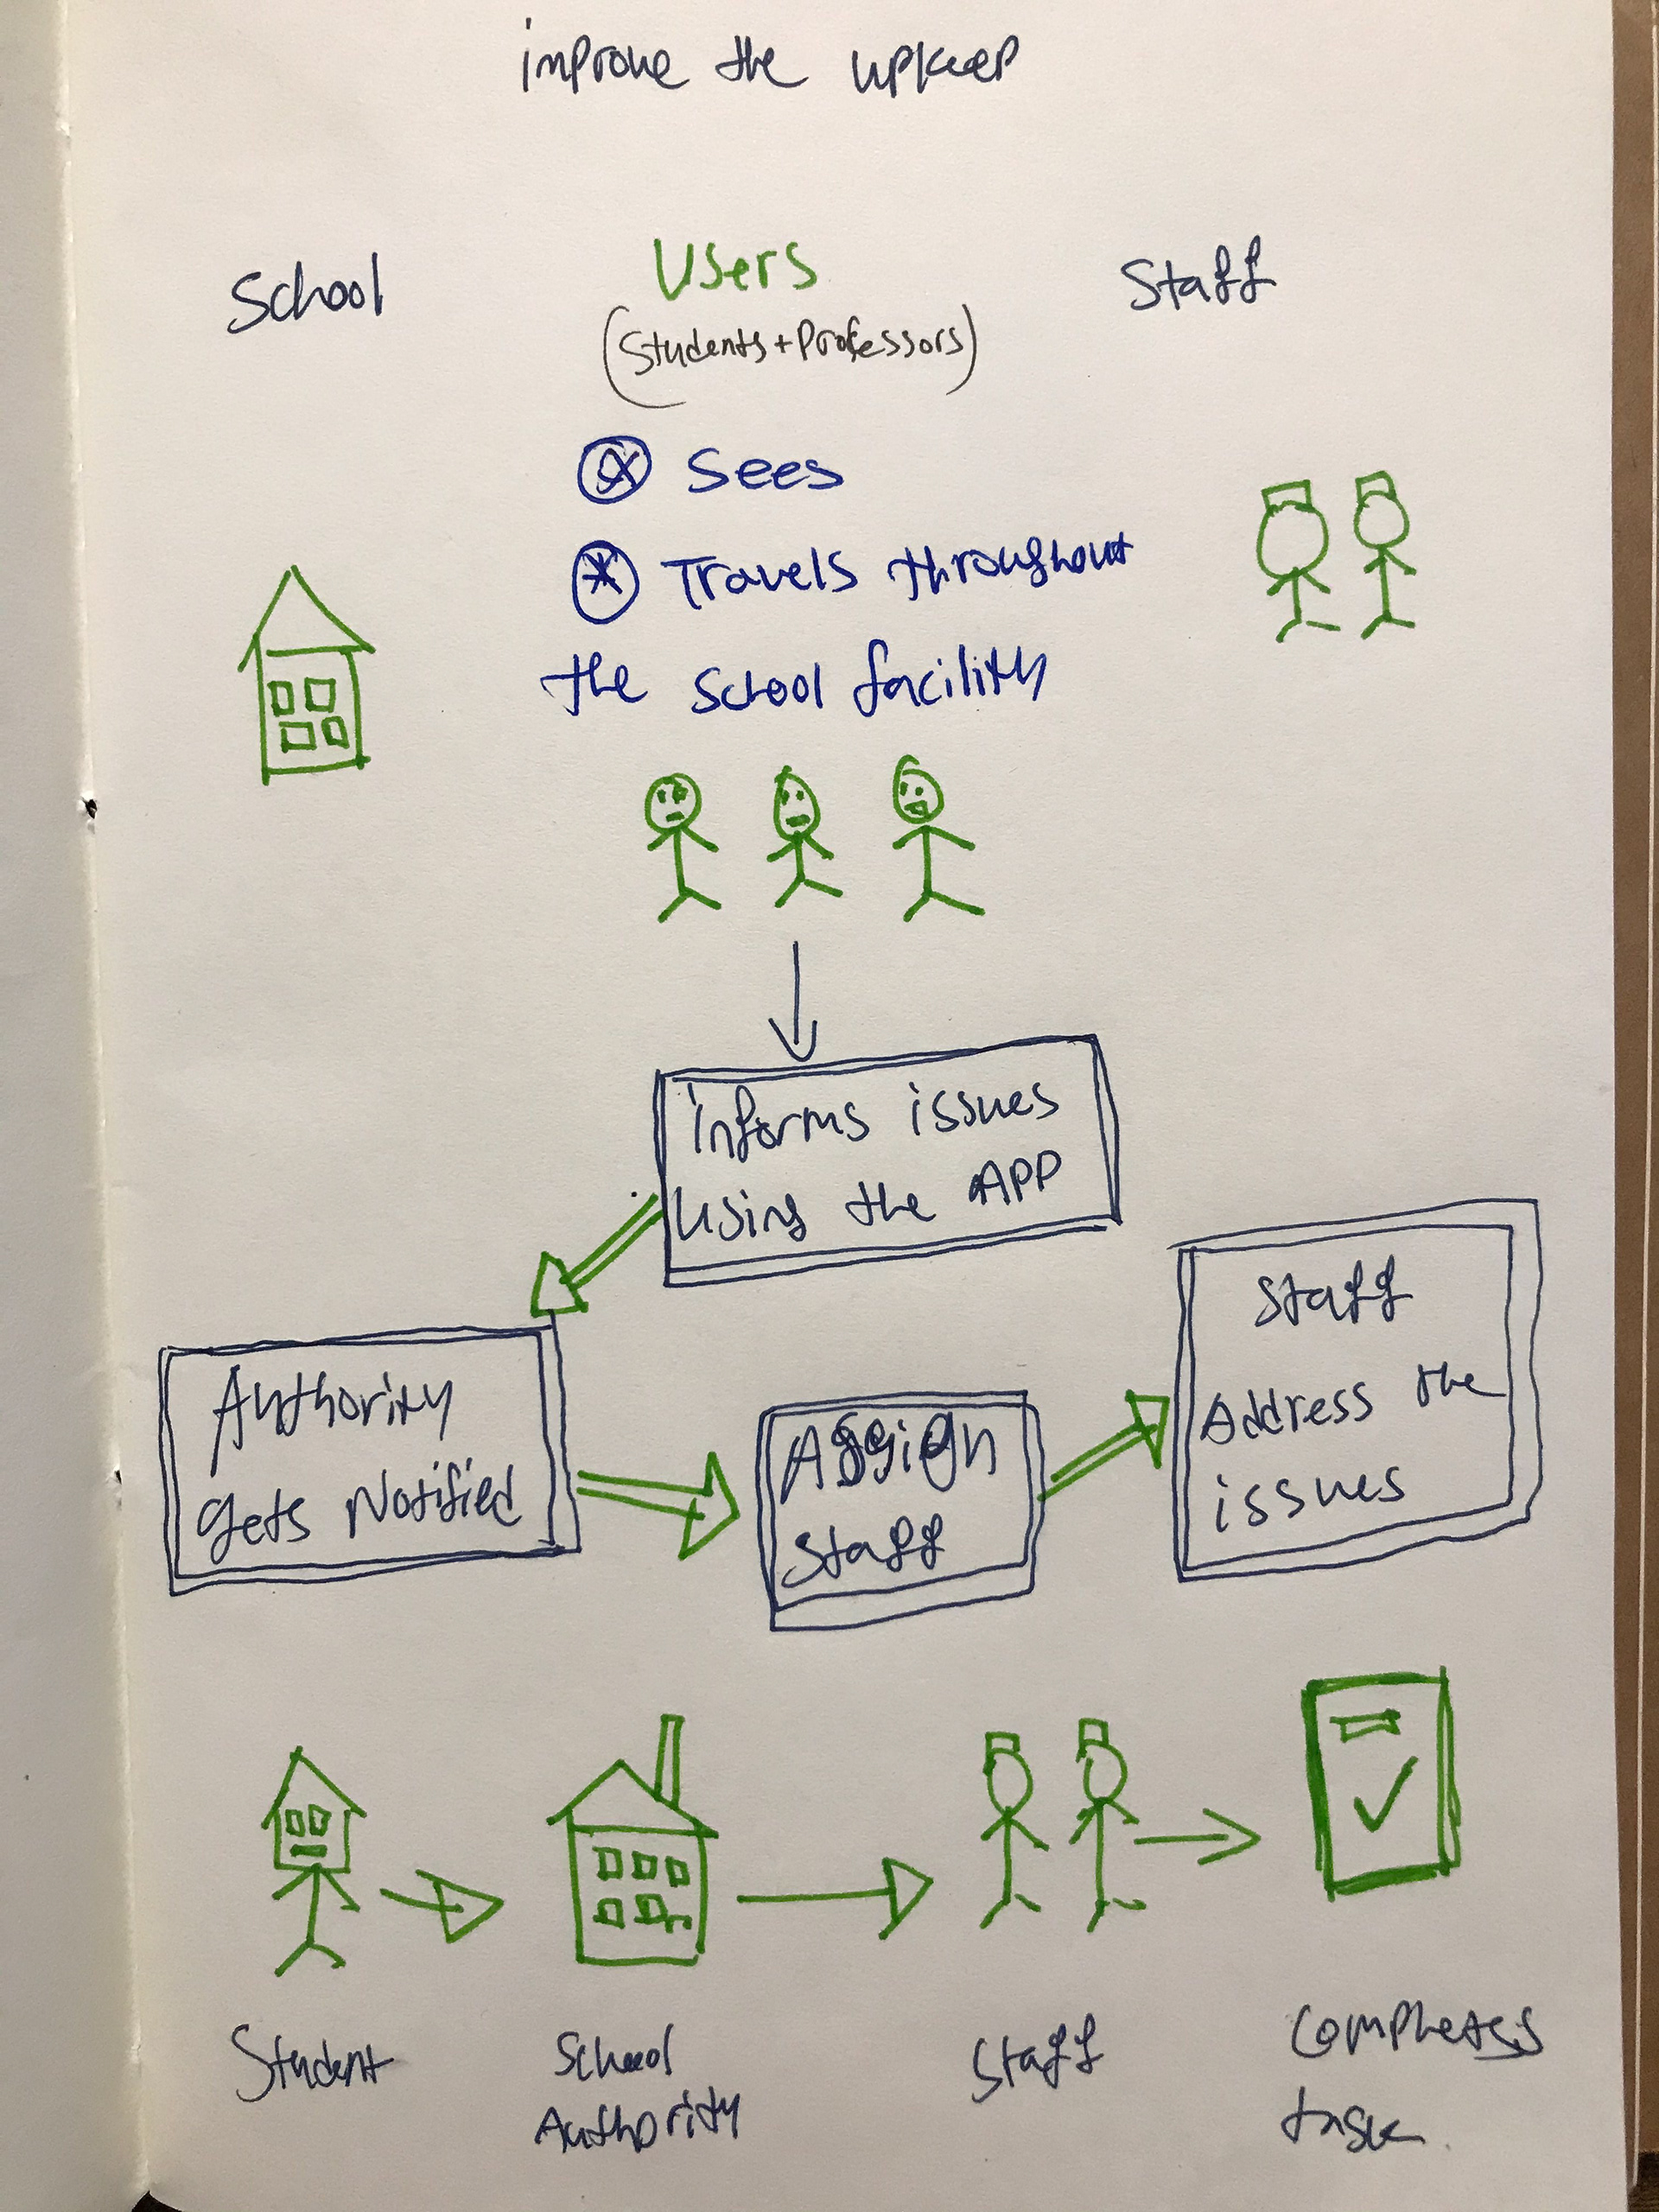 improve the upkeep
School
Users
Staff
(Students + Professors)
Sees
Travels throughout
the school facility
informs issues
using the APP
Authority
gets Notified
Assign
staff
staff
Address the
issues
Student
School
Authority
Staff
completes
task